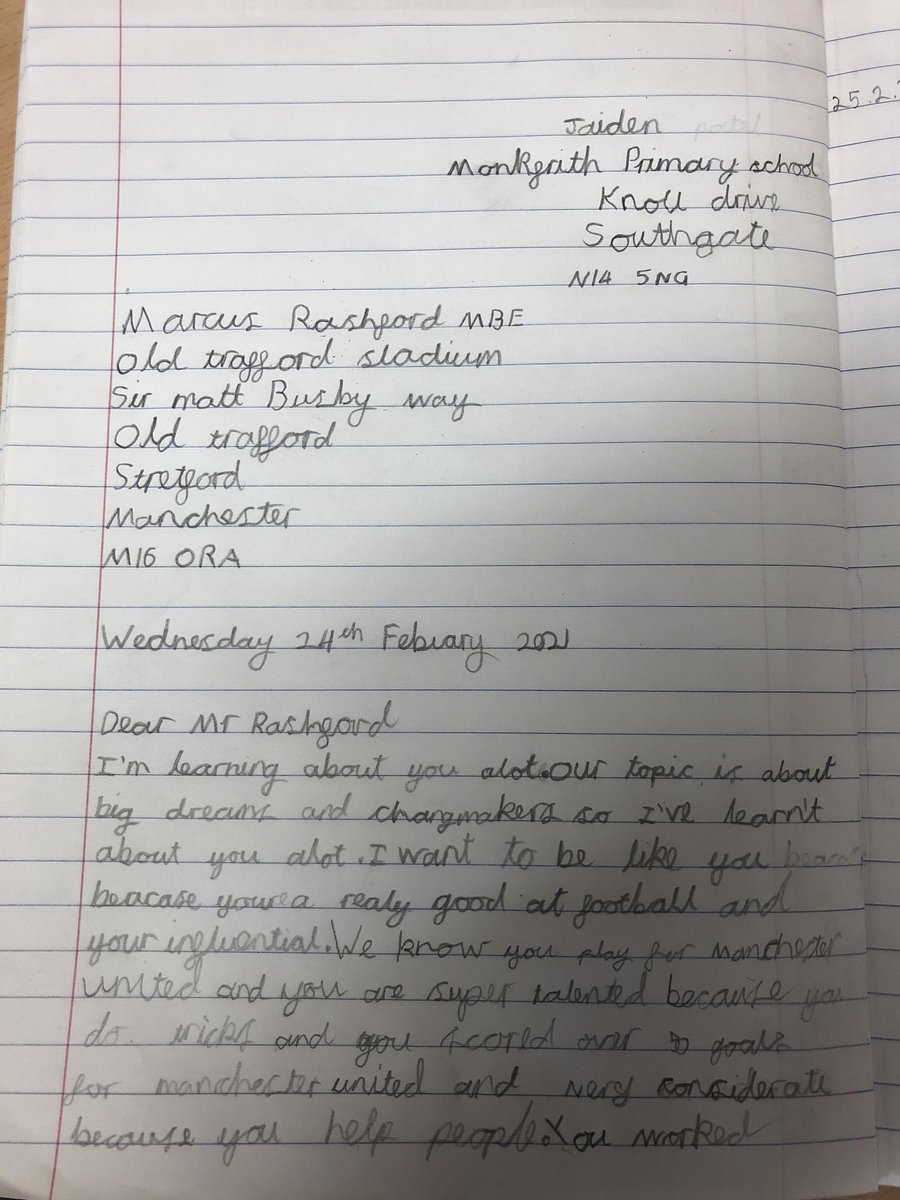 Jaiden
Monkfrith Primary school
Knoll drive
Southgate
N14 5NG
25.2.
Marcus Rashford MBE
Old trafford stadium
Sir matt Busby way
Old trafford
Stretford
Manchester
M16 ORA
Wednesday 24th Febuary 2021
Dear Mr Rashford
I'm learning about you alot. Our topic is about
big dreams and changmakers so I've learn't
about you alot. I want to be like you
beacase your a realy good at football and
your influential. We know you play for manchester
united and you are super talented because you
do tricks and you scored over goals
for manchester united and very considerate
because you help people. You worked